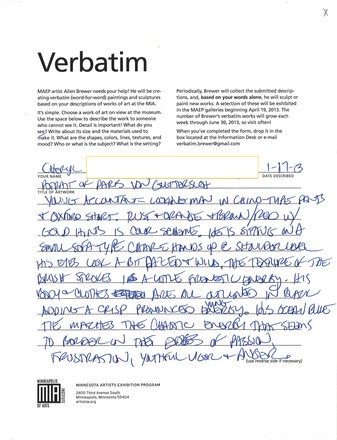 Verbatim
MAEP artist Allen Brewer needs your help! He will be
creating verbatim (word-for-word) paintings and sculptures
based on descriptions of works of art at the MIA.
It's simple. Choose a work of art on view at the museum.
Use the space below to describe the work to someone
who cannot see it. Detail is important! What do you
see? Write about its size and the materials used to
make it. What are the shapes, colors, lines, textures, and
mood? Who or what is the subject? What is the setting?
Periodically, Brewer will collect the submitted descriptions,
and, based on your words alone, he will sculpt or
paint new works. A selection of these will be exhibited
in the MAEP galleries beginning April 19, 2013. The
number of Brewer's verbatim works will grow each
week through June 30, 2013, so visit often!
When you've completed the form, drop it in the
box located at the Information Desk or e-mail
verbatim.brewer@gmail.com
Cheryl 1-17-13
YOUR NAME DATE DESCRIBED
PORTRAIT OF PARIS VON GUTTERSLOH
TITLE OF ARTWORK
YOUNG ACCOUNTANT LOOKING MAN IN CHINO-TYPE PANTS
& OXFORD SHIRT. RUST & ORANGE & BROWN/RED W/
GOLD HINTS IS COLOR SCHEME. HE IS SITTING IN A
SMALL SOFA TYPE CHAIR HANDS UP @ SHOULDER LEVEL
HIS EYES LOOK A BIT DAZED & WILD. THE TEXTURE OF THE
BRUSH STROKES IS A LITTLE FRENETIC ENERGY. HIS
BODY & CLOTHES ARE ALL OUTLINED IN BLACK
ADDING A CRISP PRONOUNCED ENERGY. HIS OCEAN BLUE
TIE MATCHES THE CHAOTIC ENERGY THAT SEEMS
TO BORDER ON THE EDGES OF PASSION,
FRUSTRATION, YOUTHFUL VIGOR & ANGER.
(use reverse side if necessary)
MINNEAPOLIS
MIA
INSTITUTE
OF ARTS
MINNESOTA ARTISTS EXHIBITION PROGRAM
2400 Third Avenue South
Minneapolis, Minnesota 55404
artsmia.org